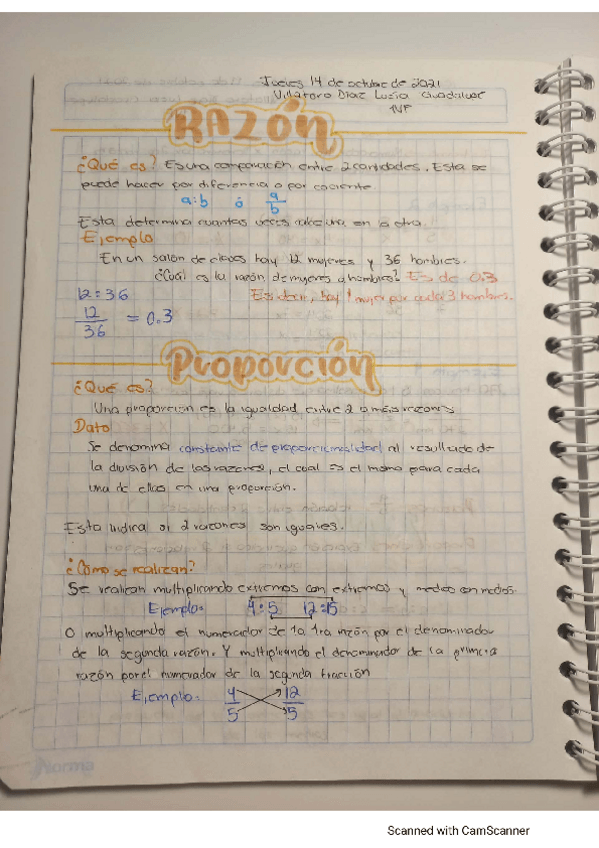 Jueves 14 de octubre de 2021
Villatoro Díaz Lucía Guadalupe
RAZÓN
¿Qué es? Es una comparación entre 2 cantidades. Esta se
puede hacer por diferencia o por cociente
a:b ó a/b
Esta determina cuantas veces una en la otra.
Ejemplo
En un salón de clases hay 12 mujeres y 36 hombres.
¿Cuál es la razón de mujeres a hombres? Es de 0.3
12:36 Es decir, hay 1 mujer por cada 3 hombres.
12/36 = 0.3
Proporción
¿Qué es?
Una proporción es la igualdad entre 2 o más razones
Dato
Se denomina constante de proporcionalidad al resultado de
la división de las razones, el cual es el mismo para cada
una de ellas en una proporción.
Esta indica si 2 razones son iguales.
¿Cómo se realizan?
Se realizan multiplicando extremos con extremos y medios con medios
Ejemplo: 4:5 12:15
O multiplicando el numerador de la 1ra razón por el denominador
de la segunda razón. Y multiplicando el denominador de la primera
razón por el numerador de la segunda fracción
Ejemplo: 4/5 12/5
Norma
Scanned with CamScanner